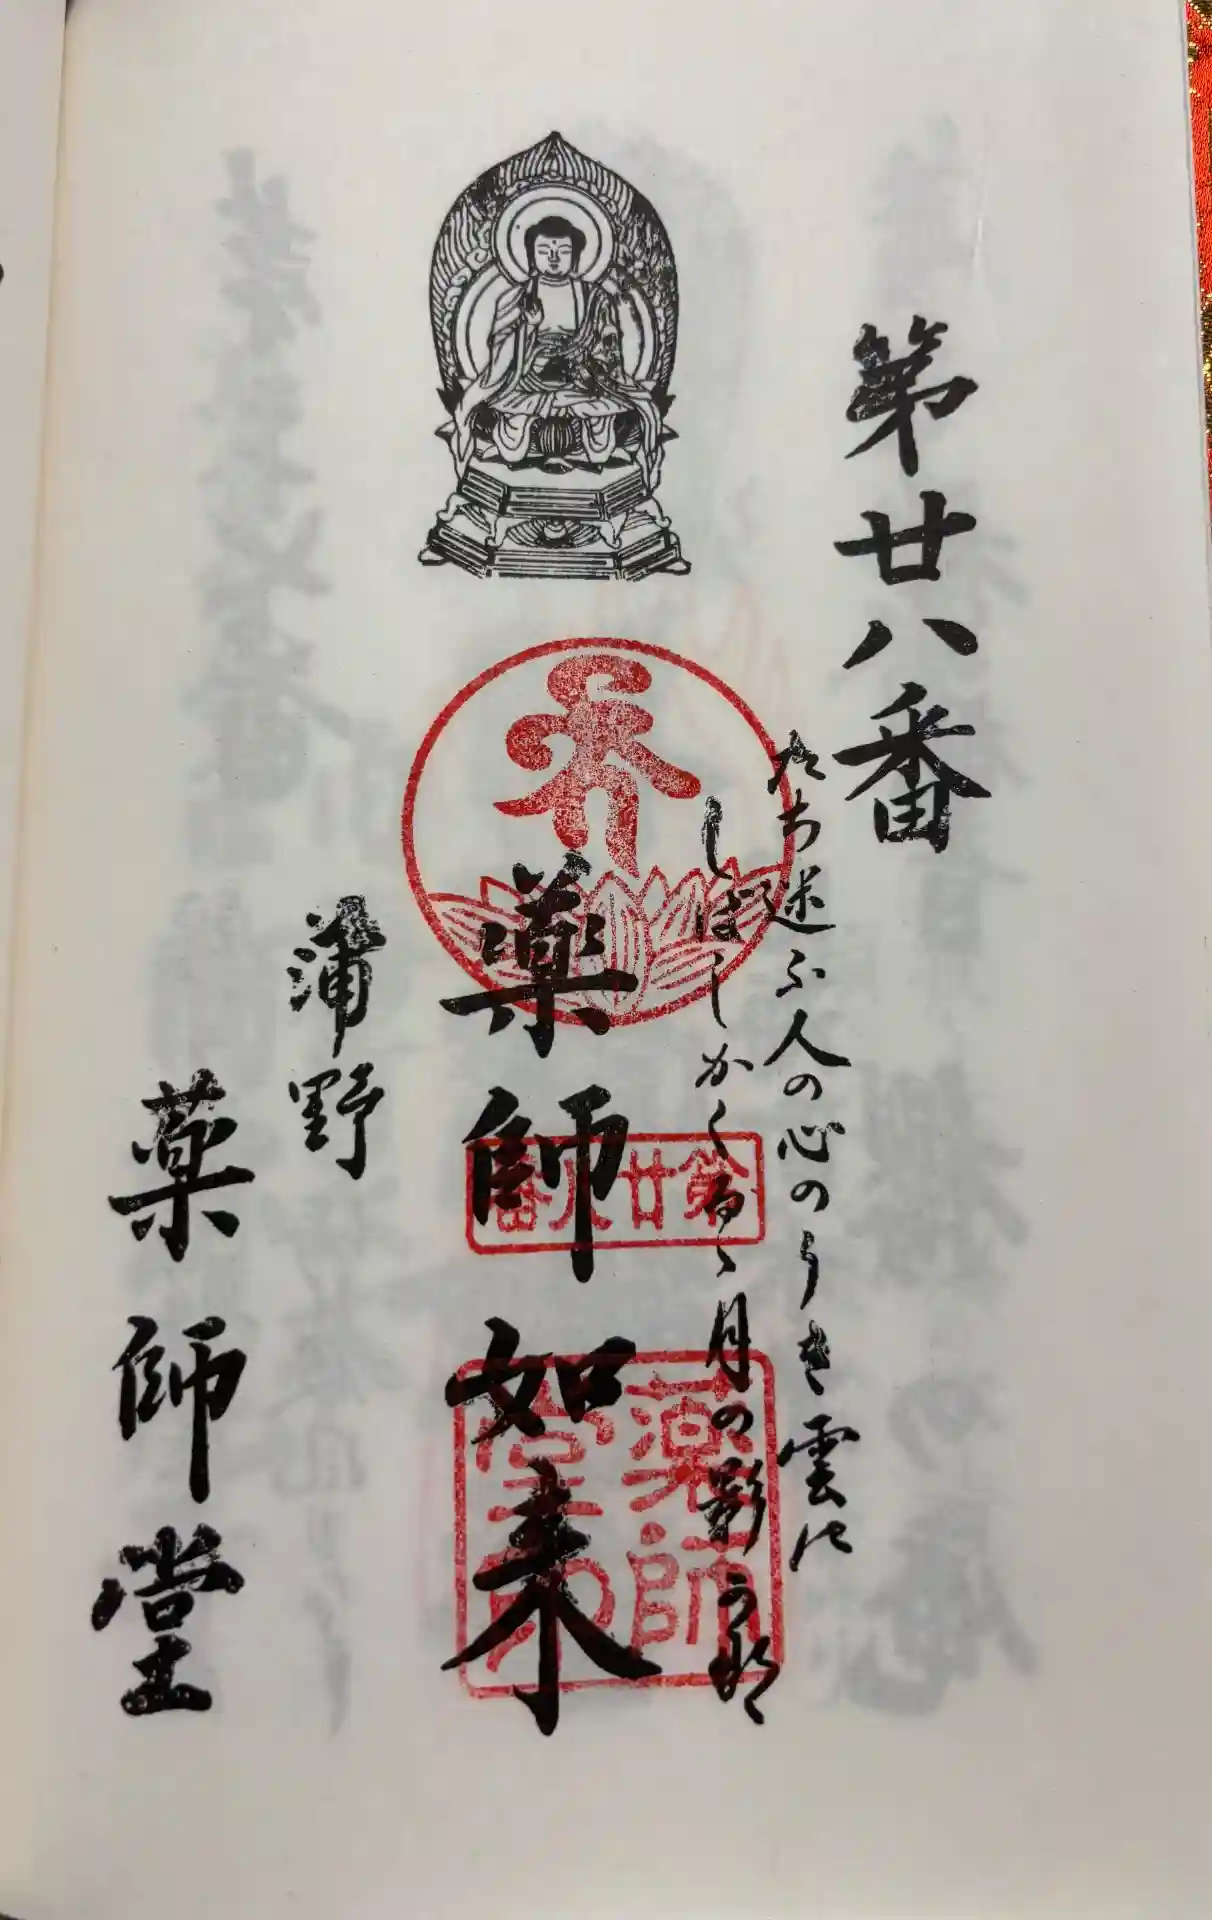 第廿八番
たち迷ふ人の心のうき雲に
しばしかくるゝ月の影かな
薬師如来
第廿八番
薬師堂印
蒲野
薬師堂